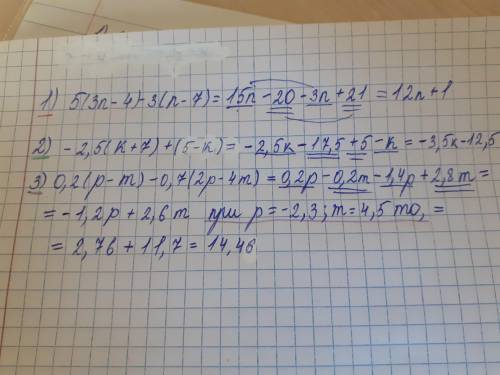 1) 5(3n-4)-3(n-7)=15n-20-3n+21=12n+1
2) -2,5(k+7)+(5-k)=-2,5k-17,5+5-k=-3,5k-12,5
3) 0,2(p-m)-0,7(2p-4m)=0,2p-0,2m-1,4p+2,8m=
=-1,2p+2,6m при p=-2,3; m=4,5 то, =
=2,76+11,7=14,46